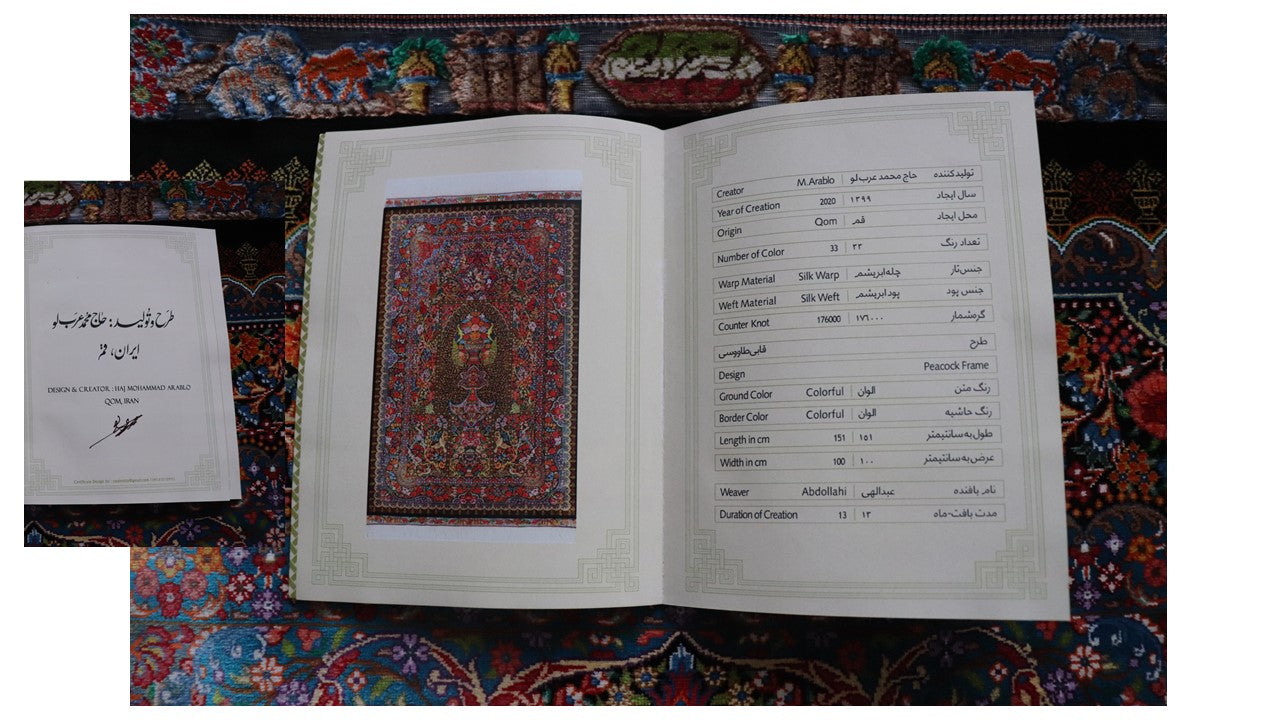 طرح و تولید: حاج محمد عرب‌لو
ایران، قم
DESIGN & CREATOR : HAJ MOHAMMAD ARABLO
QOM, IRAN
Creator M.Arablo حاج محمد عرب‌لو تولیدکننده
Year of Creation 2020 ۱۳۹۹ سال ایجاد
Origin Qom قم محل ایجاد
Number of Color 33 ۳۳ تعداد رنگ
Warp Material Silk Warp چله ابریشم جنس تار
Weft Material Silk Weft پود ابریشم جنس پود
Counter Knot 176000 ۱۷٦۰۰۰ گره‌شمار
قابی طاووسی طرح
Design Peacock Frame
Ground Color Colorful الوان رنگ متن
Border Color Colorful الوان رنگ حاشیه
Length in cm 151 ۱۵۱ طول به سانتیمتر
Width in cm 100 ۱۰۰ عرض به سانتیمتر
Weaver Abdollahi عبدالهی نام بافنده
Duration of Creation 13 ۱۳ مدت بافت-ماه